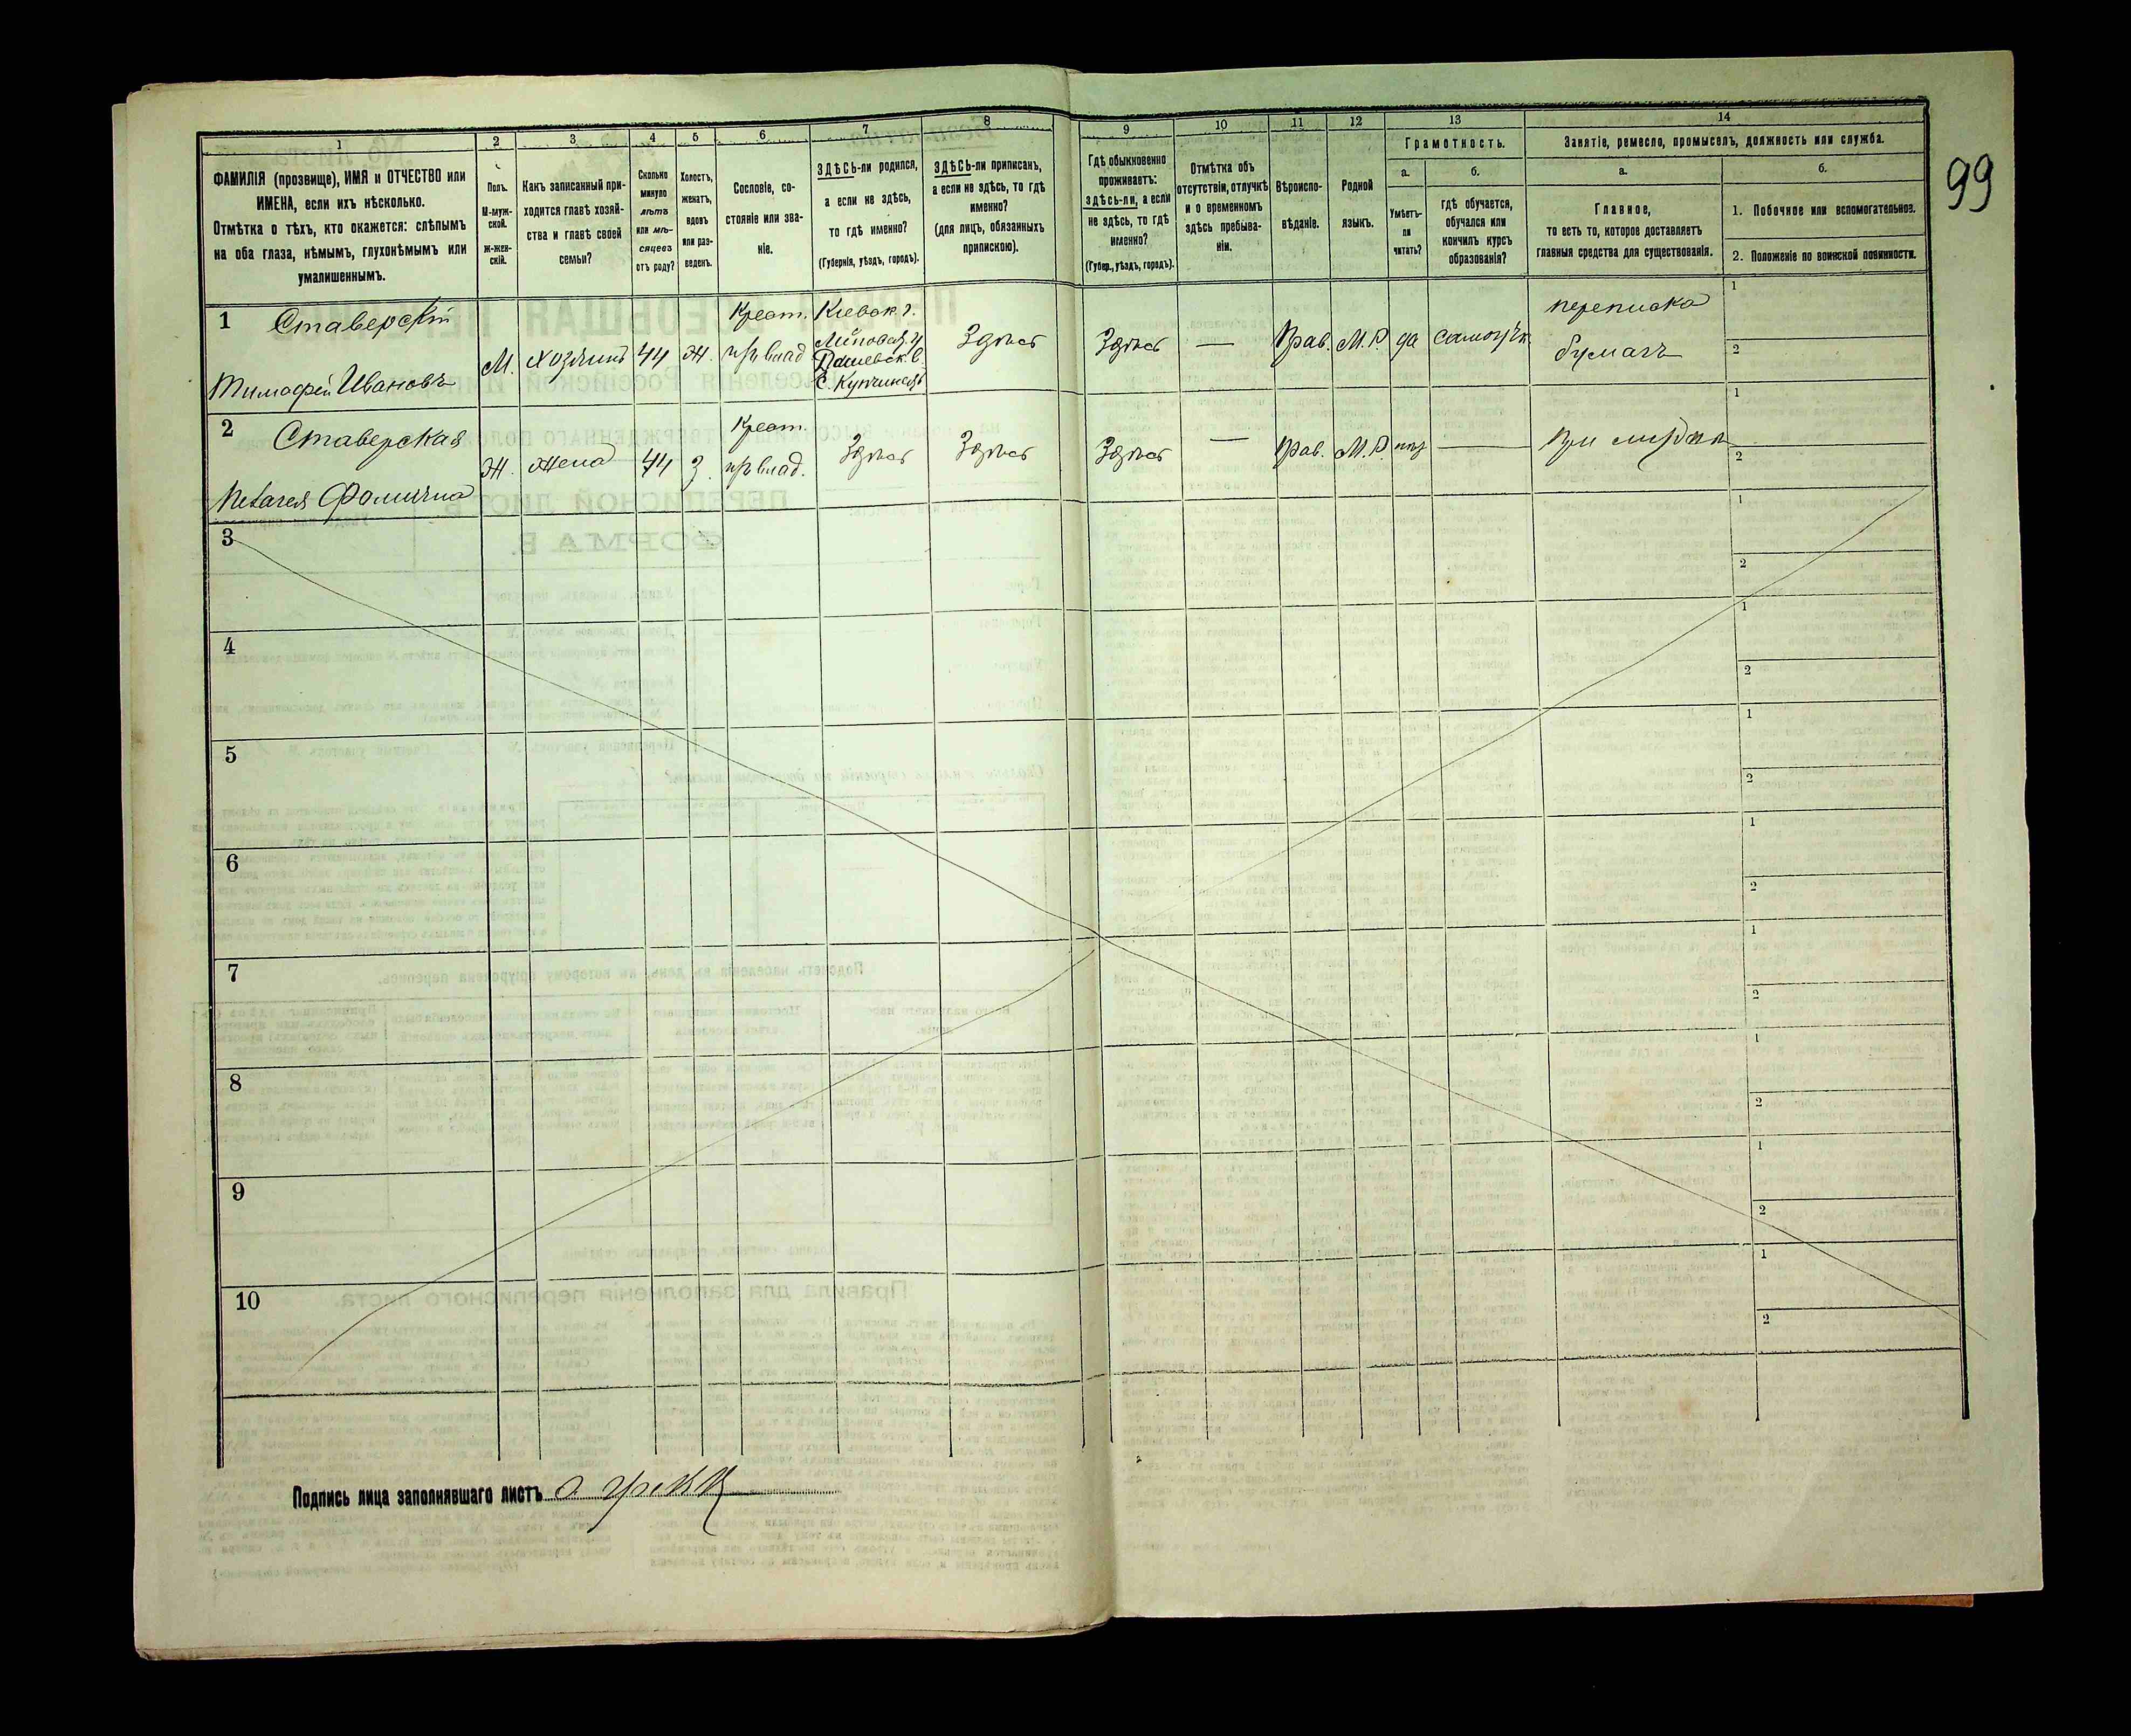 99
1 2 3 4 5 6 7 8 9 10 11 12 13 14
ФАМИЛІЯ (прозвище), ИМЯ и ОТЧЕСТВО или
ИМЕНА, если ихъ нѣсколько.
Отмѣтка о тѣхъ, кто окажется: слѣпымъ
на оба глаза, нѣмымъ, глухонѣмымъ или
умалишеннымъ.
Полъ.
М-муж-
ской.
ж-жен-
скій.
Какъ записанный при-
ходится главѣ хозяй-
ства и главѣ своей
семьи?
Сколько
минуло
лѣтъ
или мѣ-
сяцевъ
отъ роду?
Холостъ,
женатъ,
вдовъ
или раз-
веденъ.
Сословіе, со-
стояніе или зва-
ніе.
ЗДѢСЬ-ли родился,
а если не здѣсь,
то гдѣ именно?
(Губернія, уѣздъ, городъ).
ЗДѢСЬ-ли приписанъ,
а если не здѣсь, то гдѣ
именно?
(для лицъ, обязанныхъ
припискою).
Гдѣ обыкновенно
проживаетъ:
здѣсь-ли, а если
не здѣсь, то гдѣ
именно?
(Губер., уѣздъ, городъ).
Отмѣтка объ
отсутствіи, отлучкѣ
и о временномъ
здѣсь пребыва-
ніи.
Вѣроиспо-
вѣданіе.
Родной
языкъ.
Грамотность.
а.
Умѣетъ-
ли
читать?
б.
гдѣ обучается,
обучался или
кончилъ курсъ
образованія?
Занятіе, ремесло, промыселъ, должность или служба.
а.
Главное,
то есть то, которое доставляетъ
главныя средства для существованія.
б.
1. Побочное или вспомогательное.
2. Положеніе по воинской повинности.
1 Ставерскій
Тимофей Ивановъ
М. хозяинъ 44 Ж.
Крест.
пр влад
Киевск. г.
Липовец. у
Дашевск. в.
с. Купчинецъ
Здѣсь Здѣсь — Прав. М.Р. да самоучк.
переписка
бумагъ
1
2
2 Ставерская
Пелагея Фомична
Ж. жена 44 З.
Крест.
пр влад.
Здѣсь Здѣсь Здѣсь — Прав. М.Р. нѣт —
При мужѣ
1
2
3
1
2
4
1
2
5
1
2
6
1
2
7
1
2
8
1
2
9
1
2
10
1
2
Подпись лица заполнявшаго листъ